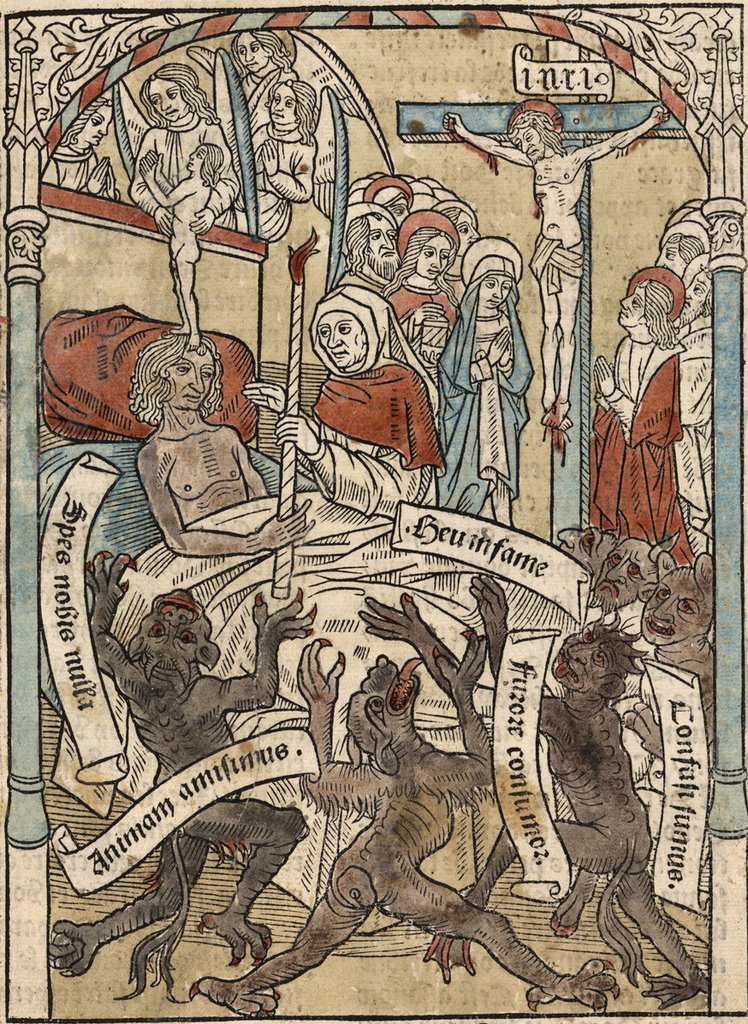 i.n.r.i.
Heu infame
Spes nobis nulla
furore consumor
Confusi sumus.
Animam amisimus.